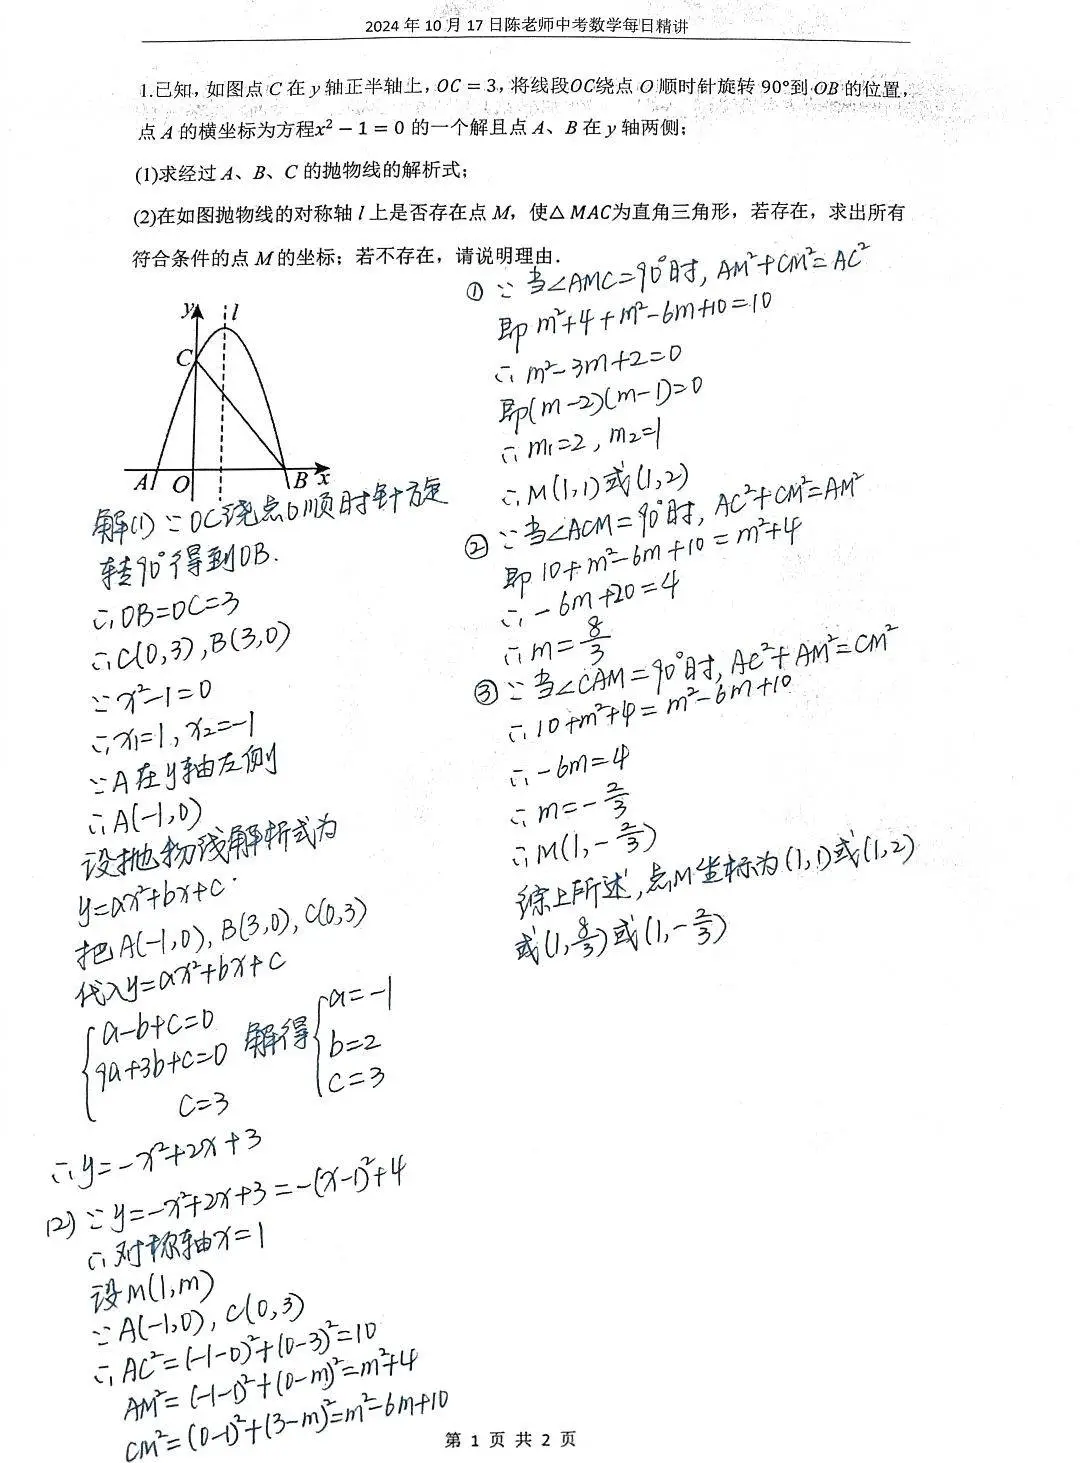 2024 年 10 月 17 日陈老师中考数学每日精讲
1.已知，如图点 C 在 y 轴正半轴上，OC = 3，将线段OC绕点 O 顺时针旋转 90°到 OB 的位置，
点 A 的横坐标为方程x² − 1 = 0 的一个解且点 A、B 在 y 轴两侧；
(1)求经过 A、B、C 的抛物线的解析式；
(2)在如图抛物线的对称轴 l 上是否存在点 M，使△ MAC为直角三角形，若存在，求出所有
符合条件的点 M 的坐标；若不存在，请说明理由．
y
l
C
A
O
B
x
解(1) ∵ OC绕点O顺时针旋
转90°得到OB.
∴OB=OC=3
∴C(0,3),B(3,0)
∵x²-1=0
∴x₁=1, x₂=-1
∵A在y轴左侧
∴A(-1,0)
设抛物线解析式为
y=ax²+bx+c.
把A(-1,0), B(3,0), C(0,3)
代入y=ax²+bx+c
{a-b+c=0
9a+3b+c=0
c=3
解得{a=-1
b=2
c=3
∴y=-x²+2x+3
(2) ∵y=-x²+2x+3=-(x-1)²+4
∴对称轴x=1
设M(1,m)
∵A(-1,0), C(0,3)
∴AC²=(-1-0)²+(0-3)²=10
AM²=(-1-1)²+(0-m)²=m²+4
CM²=(0-1)²+(3-m)²=m²-6m+10
① ∵当∠AMC=90°时, AM²+CM²=AC²
即m²+4+m²-6m+10=10
∴m²-3m+2=0
即(m-2)(m-1)=0
∴m₁=2, m₂=1
∴M(1,1)或(1,2)
② ∵当∠ACM=90°时, AC²+CM²=AM²
即10+m²-6m+10=m²+4
∴-6m+20=4
∴m=8/3
③ ∵当∠CAM=90°时, AC²+AM²=CM²
∴10+m²+4=m²-6m+10
∴-6m=4
∴m=-2/3
∴M(1,-2/3)
综上所述,点M坐标为(1,1)或(1,2)
或(1,8/3)或(1,-2/3)
第 1 页 共 2 页